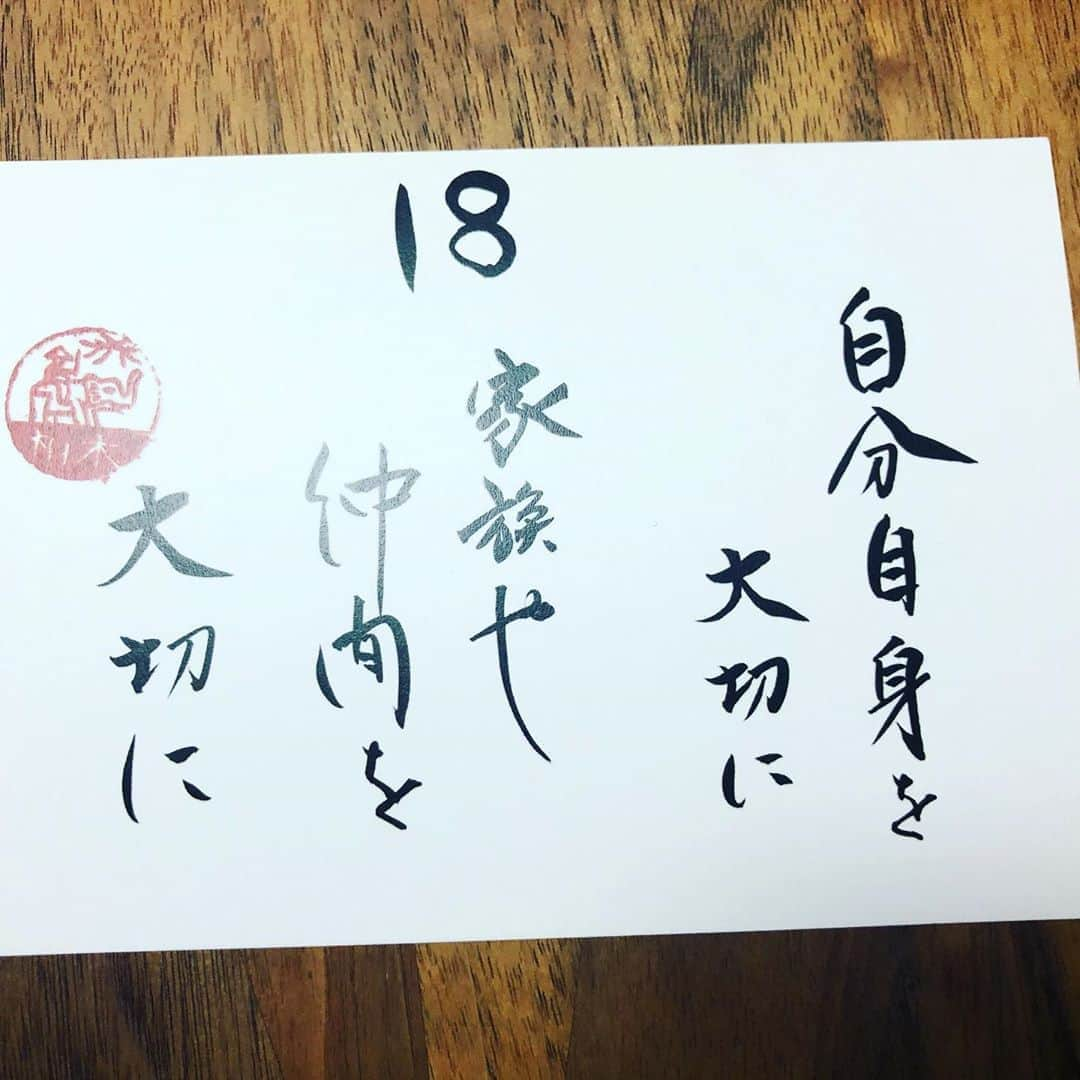 18
自分自身を
大切に
家族や
仲間を
大切に